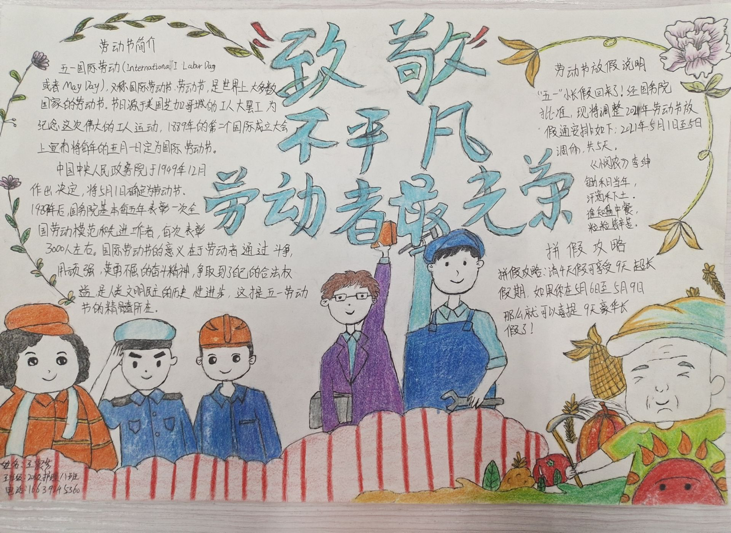 劳动节简介
五一国际劳动(International Labor Day
或者May Day),又称国际劳动节、劳动节,是世界上大多数
国家的劳动节。节日源于美国芝加哥城的工人大罢工,为
纪念这次伟大的工人运动,1889年的第二个国际成立大会
上宣布将每年的五月一日定为国际劳动节。
中国中央人民政务院于1949年12月
作出决定,将5月1日确定为劳动节。
1989年后,国务院基本每五年表彰一次全
国劳动模范和先进工作者,每次表彰
3000人左右。国际劳动节的意义在于劳动者通过斗争,
用顽强、英勇不屈的奋斗精神,争取到了自己的合法权
益,是人类文明民主的历史性进步,这才是五一劳动
节的精髓所在。
"致敬"
不平凡
劳动者最光荣
劳动节放假说明
"五一"小长假回来!经国务院
批准,现将调整2021年劳动节放
假通安排如下:2021年5月1日至5日
调休,共5天。
《悯农》李绅
锄禾日当午,
汗滴禾下土。
谁知盘中餐,
粒粒皆辛苦。
拼假攻略
拼假攻略:请4天假可享受9天超长
假期,如果你在5月6日至5月9日
那么就可以喜提9天豪华长
假了!
姓名: